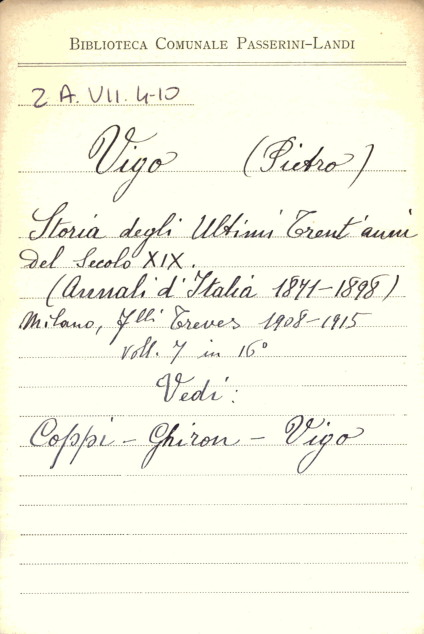 BIBLIOTECA COMUNALE PASSERINI-LANDI
2 A. VII. 4-10
Vigo (Pietro)
Storia degli Ultimi Trent'anni
del Secolo XIX.
(Annali d'Italia 1871-1898)
Milano, F.lli Treves 1908-1915
voll. 7 in 16°
Vedi:
Coppi - Ghiron - Vigo